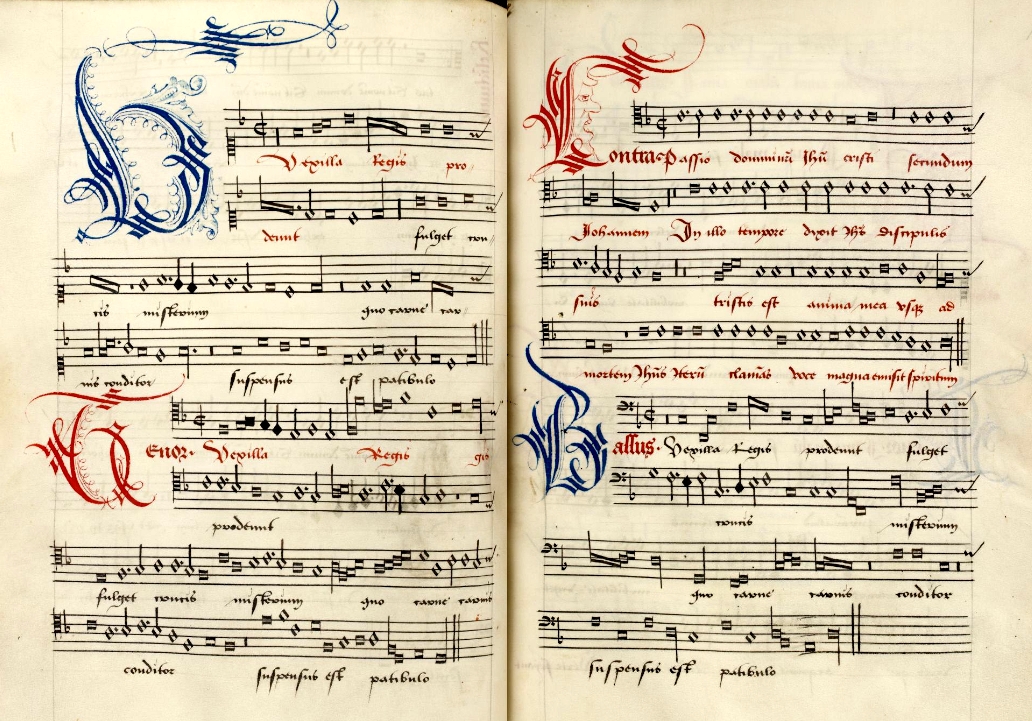 Vexilla Regis pro
deunt fulget cru
cis misterium quo carne car
nis conditor suspensus est patibulo
Tenor Vexilla Regis gis
prodeunt
fulget crucis misterium quo carne carnis
conditor suspensus est patibulo
Contra Passio domini nri Jhu cristi secundum
Johannem In illo tempore dixit Jhs discipulis
suis tristis est anima mea vsqz ad
mortem Jhus Iteru clamas voce magna emisit spiritum
Bassus. Vexilla Regis prodeunt fulget
crucis misterium
quo carne carnis conditor
suspensus est patibulo